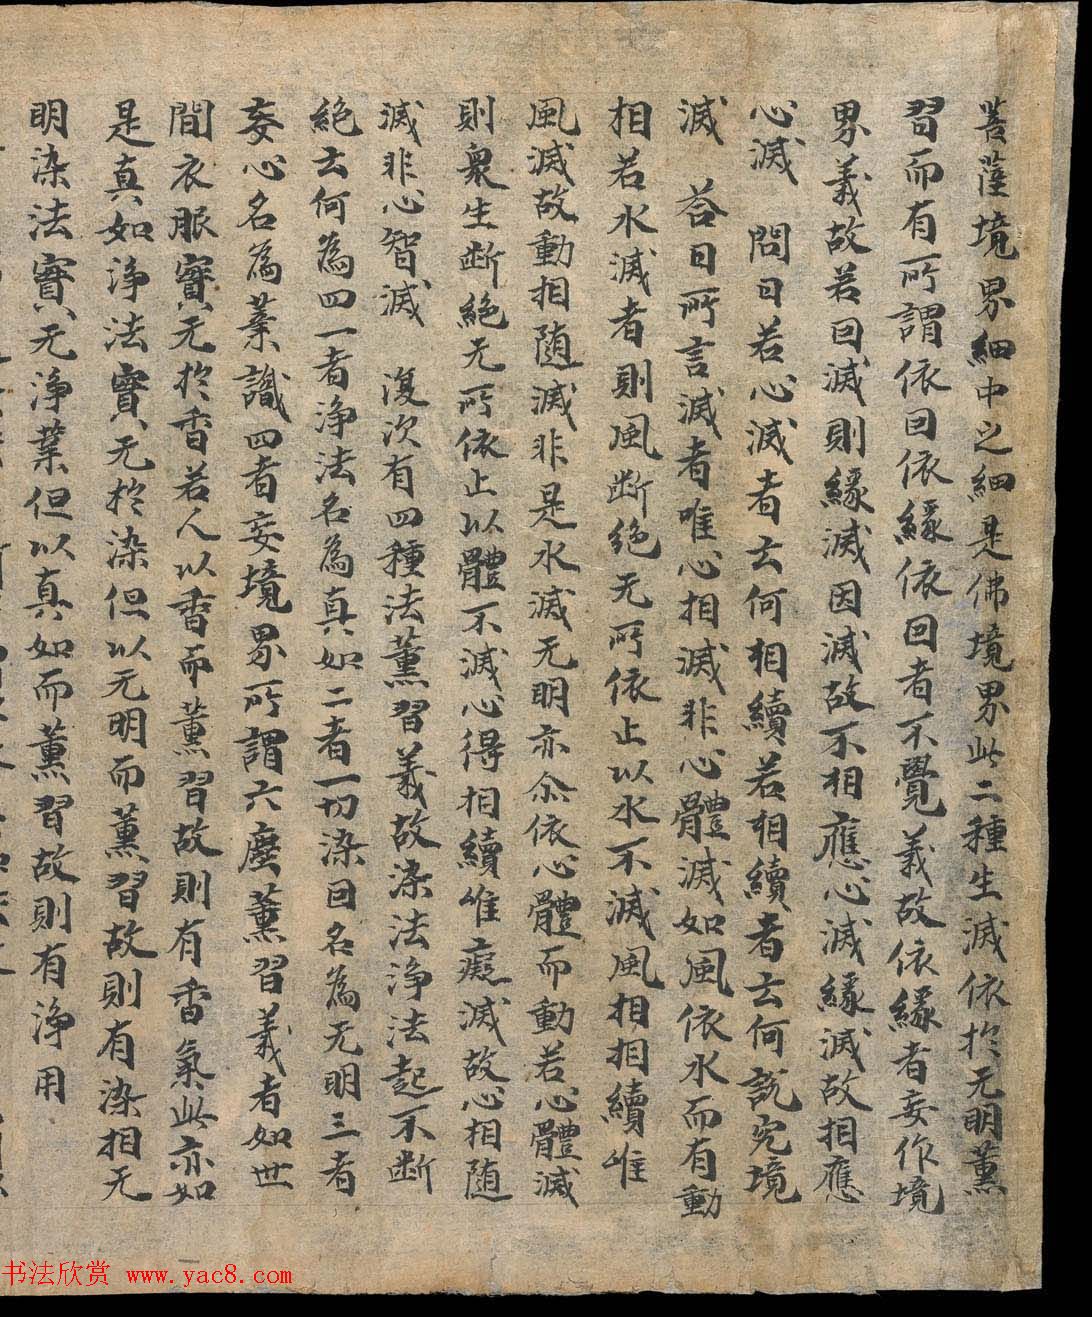 菩薩境界細中之細是佛境界此二種生滅依於无明薰
習而有所謂依因依緣依因者不覺義故依緣者妄作境
界義故若因滅則緣滅因滅故不相應心滅緣滅故相應
心滅　問曰若心滅者云何相續若相續者云何說究境
滅　荅曰所言滅者唯心相滅非心體滅如風依水而有動
相若水滅者則風断絕无所依止以水不滅風相相續唯
風滅故動相随滅非是水滅无明亦尒依心體而動若心體滅
則衆生断絕无所依止以體不滅心得相續唯癡滅故心相随
滅非心智滅　復次有四種法薰習義故染法淨法起不断
絕云何為四一者淨法名為真如二者一切染因名為无明三者
妄心名為業識四者妄境界所謂六塵薰習義者如世
間衣服實无於香若人以香而薰習故則有香氣此亦如
是真如淨法實无於染但以无明而薰習故則有染相无
明染法實无淨業但以真如而薰習故則有淨用
书法欣赏 www.yac8.com